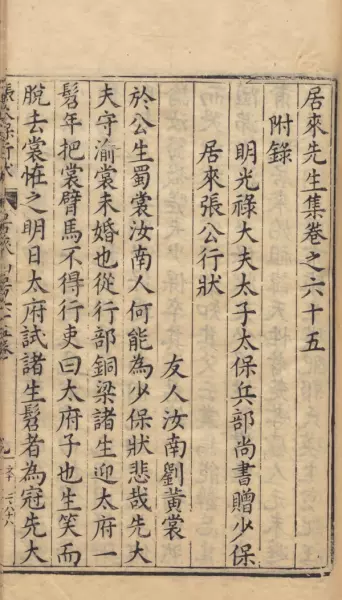 居來先生集卷之六十五
附錄
明光祿大夫太子太保兵部尚書贈少保
居來張公行狀
友人汝南劉黃裳
於公生蜀裳汝南人何能為少保狀悲哉先大
夫守渝裳未婚也從行部銅梁諸生迎太府一
髫年把裳臂馬不得行吏曰太府子也生笑而
脫去裳恠之明日太府試諸生髫者為冠先大